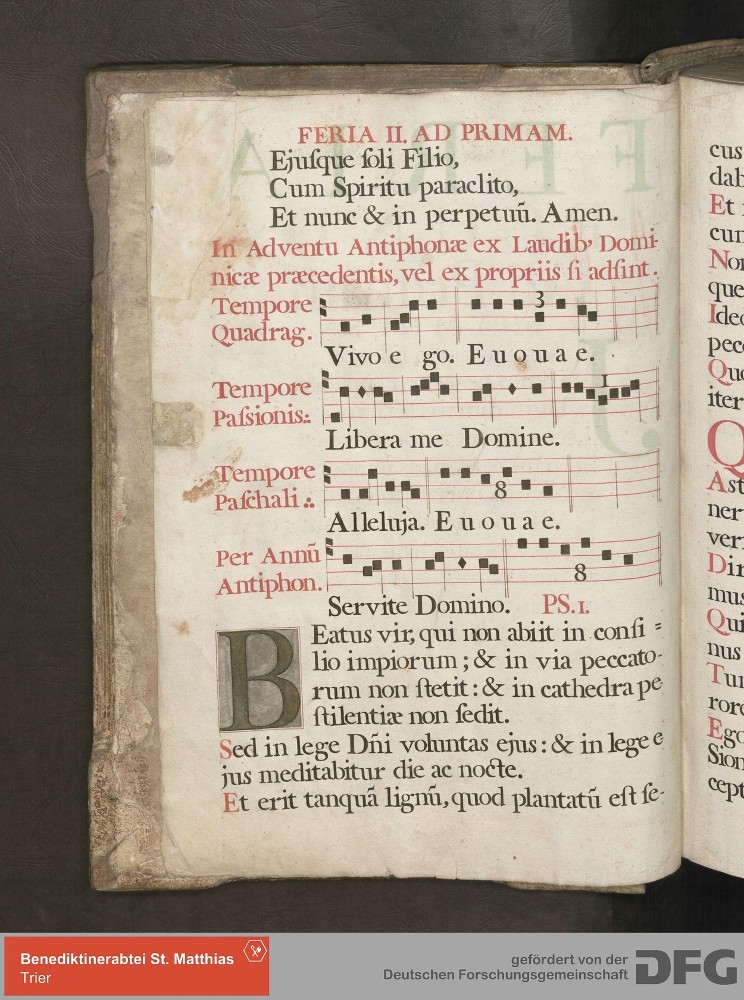 FERIA II. AD PRIMAM.
Ejuſque ſoli Filio,
Cum Spiritu paraclito,
Et nunc & in perpetuū. Amen.
In Adventu Antiphonæ ex Laudib, Domi-
nicæ præcedentis, vel ex propriis ſi adſint.
Tempore
Quadrag.
3
Vivo e go. E u o u a e.
Tempore
Paſsionis:.
1
Libera me Domine.
Tempore
Paſchali:.
8
Alleluja. E u o u a e.
Per Annū
Antiphon.
8
Servite Domino. PS.1.
BEatus vir, qui non abiit in conſi=
lio impiorum; & in via peccato-
rum non ſtetit: & in cathedra pe
ſtilentiæ non ſedit.
Sed in lege Dñi voluntas ejus: & in lege e
jus meditabitur die ac nocte.
Et erit tanquā lignū, quod plantatū eſt ſe-
cus
dab
Et
cun
Non
que
Ideo
pecc
Quo
iter
Q
Aſt
ner
ver
Dir
mus
Qui
nus
Tun
rore
Ego
Sion
cept
Benediktinerabtei St. Matthias
Trier
gefördert von der
Deutschen Forschungsgemeinschaft
DFG